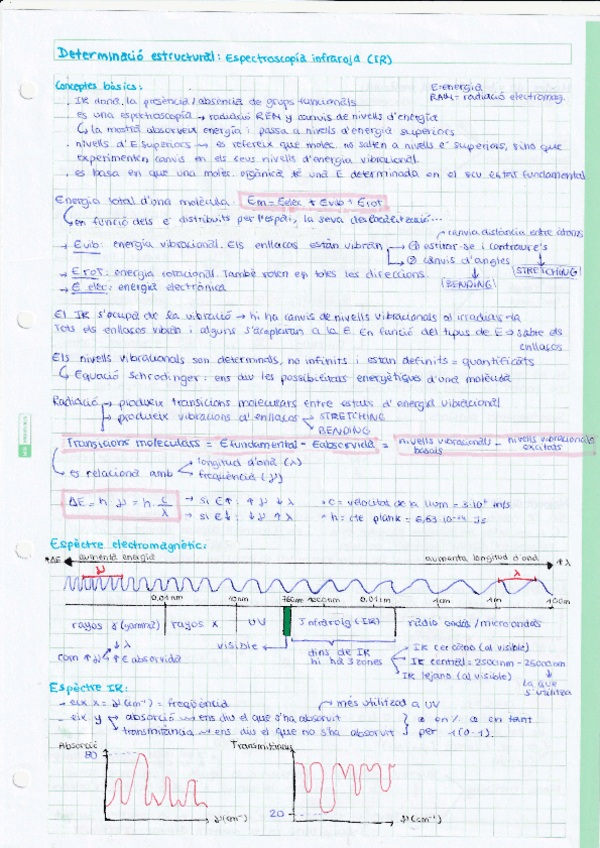 Determinació estructural: Espectroscopía infraroja (IR)
Conceptes bàsics:
E=energia
RAEM= radiació electromag.
· IR dona la presència/absència de grups funcionals
es una espectroscopia → radiació REM y canvis de nivells d'energia
↳ la mostra absorveix energia i passa a nivells d'energia superiors
· nivells d'E superiors → es refereix que molec. no salten a nivells e⁻ superiors, sino que
experimenten canvis en els seus nivells d'energia vibracional.
· es basa en que una molec. orgànica té una E determinada en el seu estat fundamental
Energia total d'una molècula: Em = Eelec + Evib + Erot
↳ en funció dels e⁻ distribuïts per l'espai, la seva deslocalització...
canvia distància entre àtoms
→ Evib: energia vibracional. Els enllaços estàn vibràn → ① estirar-se i contraure's
② canvis d'angles
STRETCHING
→ Erot: energia rotacional. També roten en totes les direccions.
BENDING
→ E elec: energia electrònica
El IR s'ocupa de la vibració → hi ha canvis de nivells vibracionals al irradiar-la
Tots els enllaços vibren i alguns s'acoplaran a la E. En funció del tipus de E → sabre els
enllaços
Els nivells vibracionals són determinats, no infinits i estan definits = quantificats
↳ Equació Schrodinger: ens diu les possibilitats energètiques d'una molècula
Radiació → produeix transicions moleculars entre estats d'energia vibracional
→ produeix vibracions d'enllaços → STRETCHING
BENDING
Transicions moleculars = Efundamental - Eabsorvida = nivells vibracionals basals - nivells vibracionals excitats
↳ es relaciona amb longitud d'ona (λ)
freqüència (ν)
ΔE = h · ν = h · c/λ
→ si E↑: ↑ν ↓λ
· c = velocitat de la llum = 3·10⁸ m/s
→ si E↓: ↓ν ↑λ
· h = cte plank = 6,63·10⁻³⁴ Js
Espèctre electromagnètic:
↑ΔE aumenta energia
aumenta longitud d'ona ↑λ
ν
λ
0,01nm 10nm 1000nm 0,01m 1m 100m
rayos γ (gamma) rayos X UV Infraroig (IR) radio ondas/microondas
visible
dins de IR
hi ha 3 zones
IR cercano (al visible)
IR central = 2500nm - 25000nm
IR lejano (al visible)
la que s'utilitza
↓λ
com ↑ν ↑E absorvida
Espèctre IR:
- eix x = ν (cm⁻¹) = freqüència
més utilitzad a UV
- eix y → absorció → ens diu el que s'ha absorvit
transmitància → ens diu el que no s'ha absorvit
o en % o en tant
per 1 (0-1).
Absorció
80
ν (cm⁻¹)
20
ν (cm⁻¹)